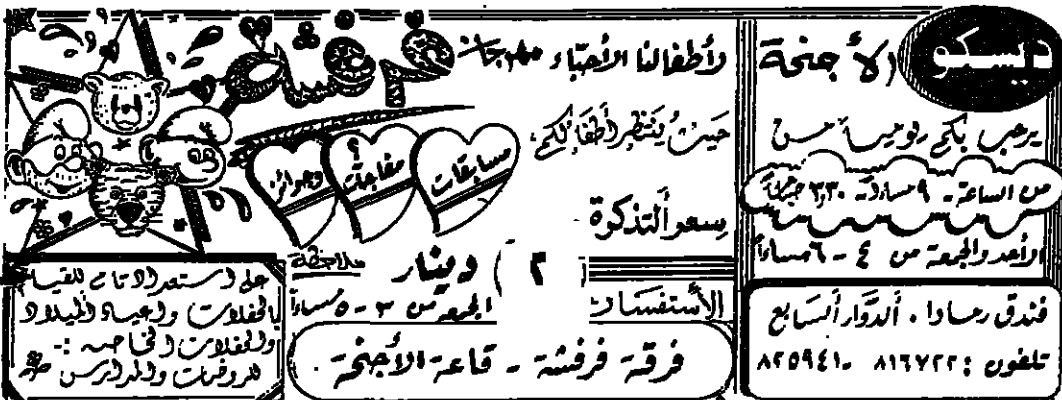 ديسكو الأجنحة
يرحب بكم يومياً من
من الساعة ٩ مساءً - ٣,٣٠ صباحاً
الأحد والجمعة من ٤ - ٦ مساءً
فندق رمادا . الدوار السابع
تلفون : ٨١٦٧٢٢ - ٨٢٥٩٤١
لأطفالنا الأحباء مهرجان
حيث ينتظر أطفالكم
مسابقات
مفاجآت ؟
وجوائز
سعر التذكرة
٢ دينار
الأستفسارات
الجمعة من ٣ - ٥ مساءً
فرقة فرفشة - قاعة الأجنحة
ملاحظة
على استعداد تام للقيام
بالحفلات واعياد الميلاد
والحفلات الخاصة :-
للروضات والمدارس